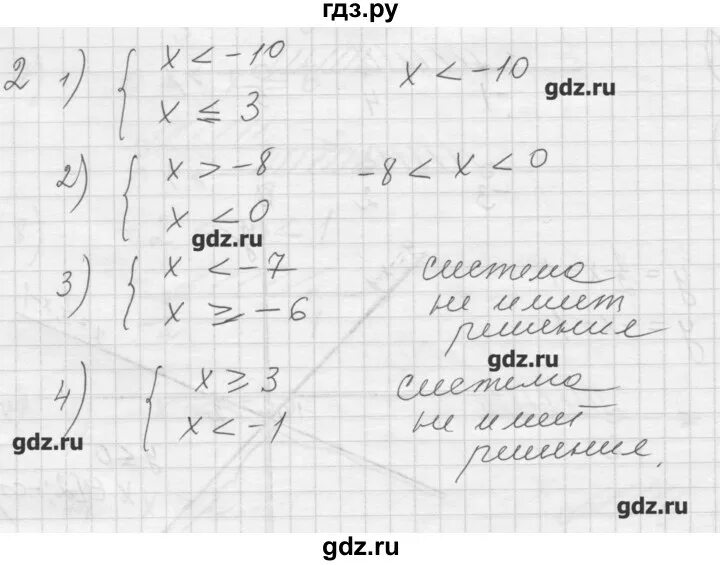 гдз.ру
2 1) { x < -10
x ≤ 3
x < -10
gdz.ru
2) { x > -8
x < 0
-8 < x < 0
gdz.ru
3) { x < -7
x ≥ -6
система
не имеет
решения
gdz.ru
4) { x ≥ 3
x < -1
система
не имеет
решения.
gdz.ru
gdz.ru
gdz.ru